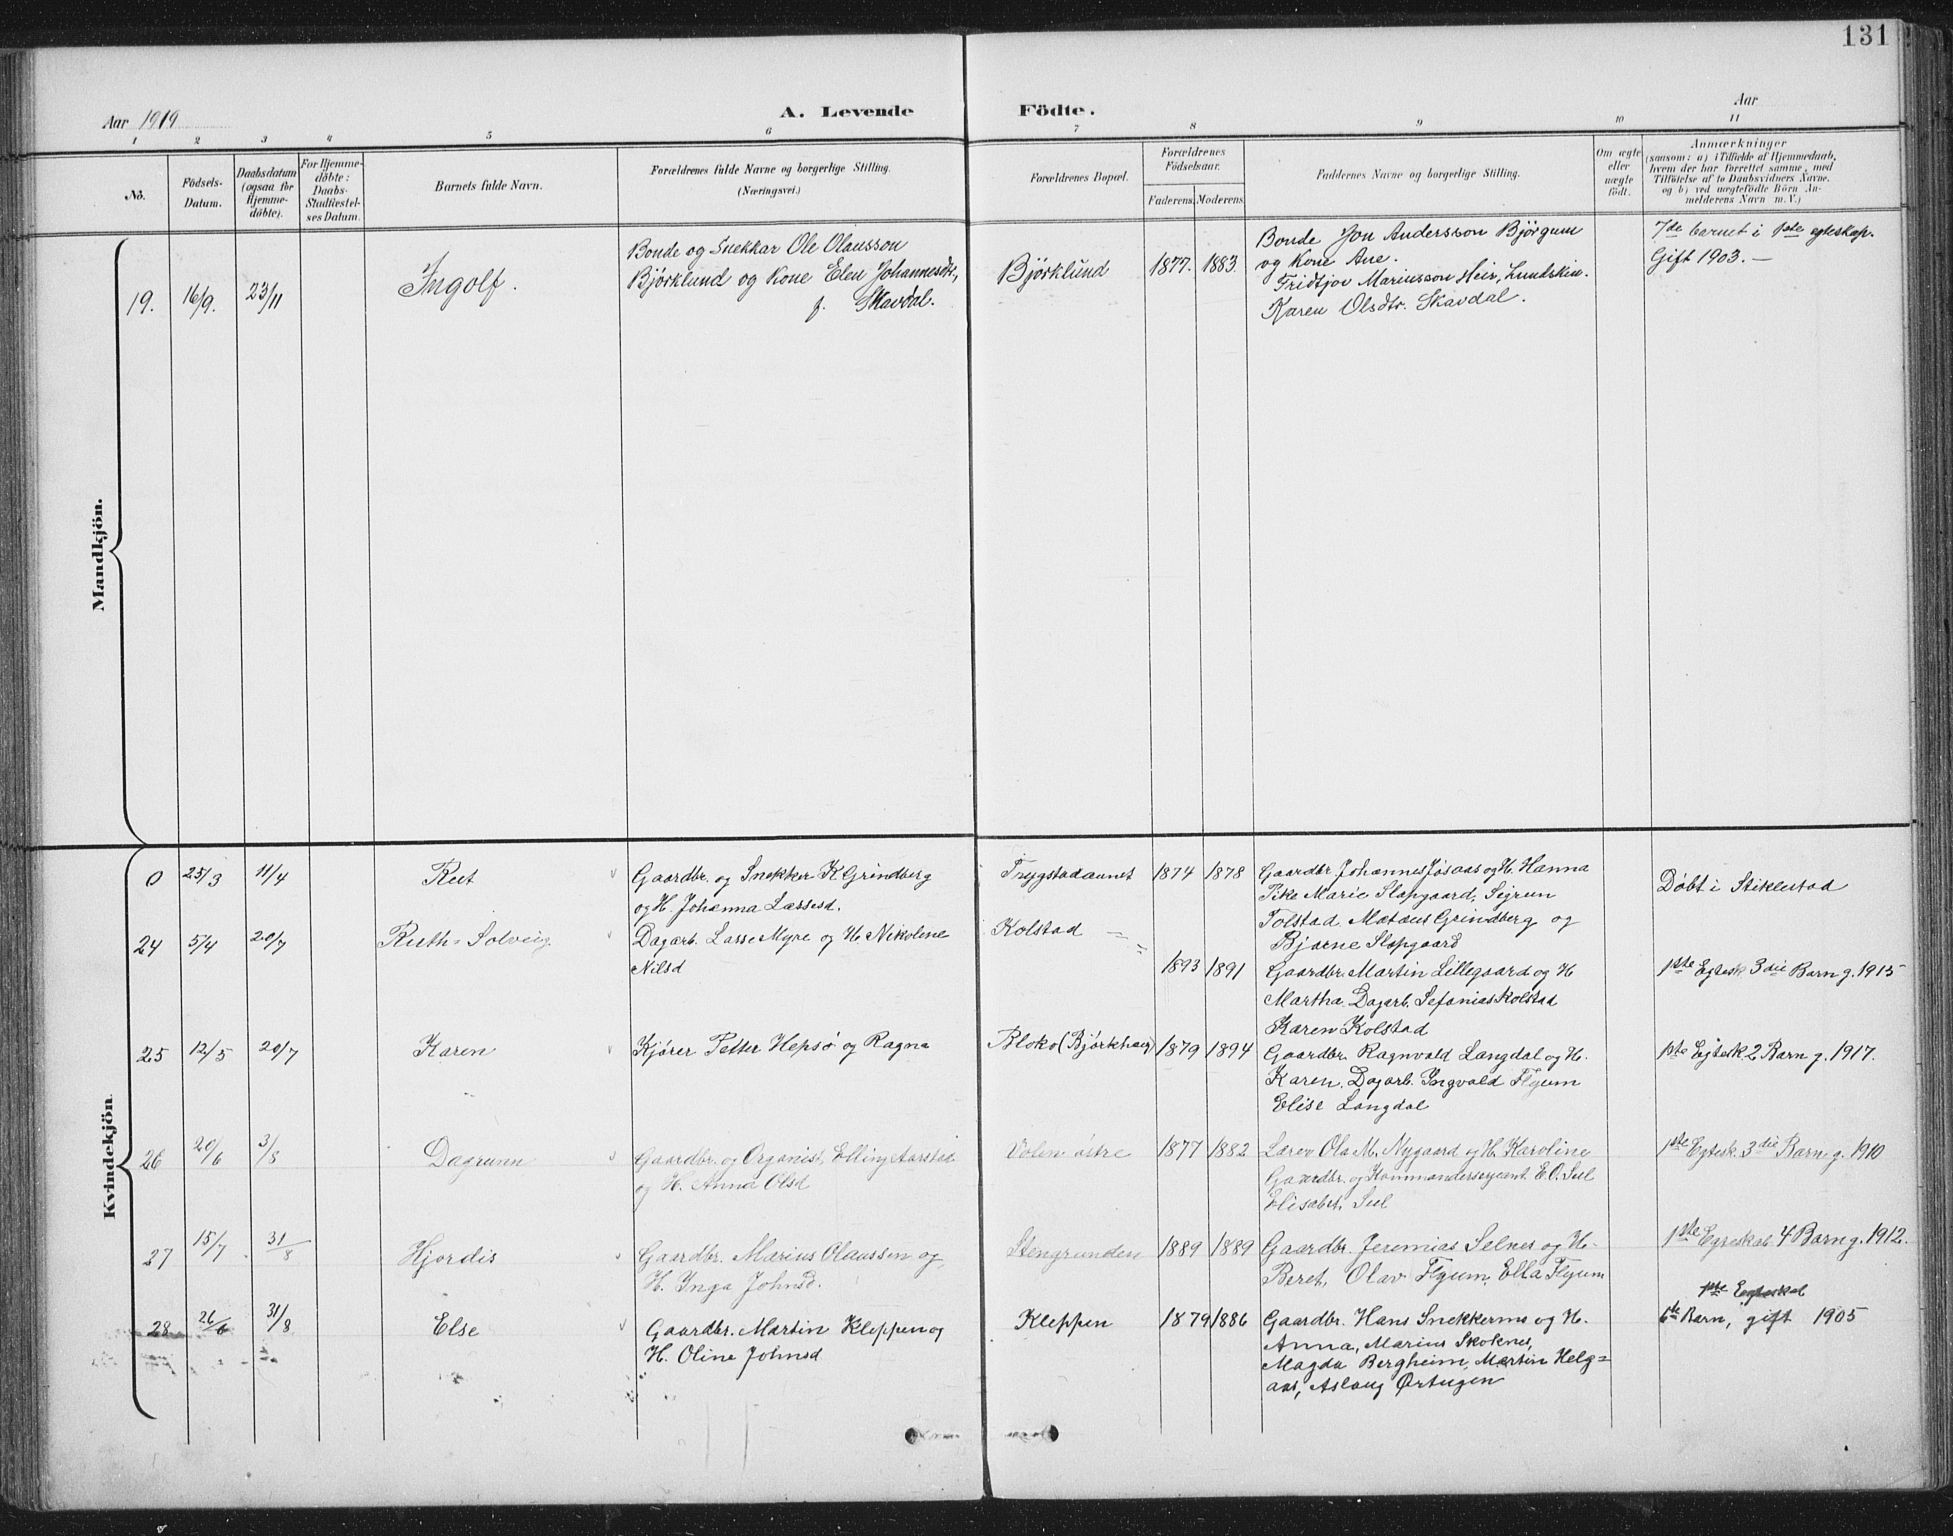 131
Aar 1919
A. Levende Födte.
Aar
1 2 3 4 5 6 7 8 9 10 11
No.
Födsels-Datum.
Daabsdatum (ogsaa for Hjemme-døbte).
For Hjemme-døbte: Daabs-Stadfæstel-ses Datum.
Barnets fulde Navn.
Forældrenes fulde Navne og borgerlige Stilling.
(Næringsvei.)
Forældrenes Bopæl.
Forældrenes Födselsaar.
Faderens. Moderens.
Faddernes Navne og borgerlige Stilling.
Om ægte eller uægte födt.
Anmærkninger
(saasom: a) i Tilfælde af Hjemmedaab,
hvem der har forrettet samme, med
Tilföielse af to Daabsvidners Navne.
og b) ved uægtefödte Börn An-
melderens Navn m. V.)
Mandkjön.
19. 16/9. 23/11 Ingolf.
Bonde og Snekkar Ole Olausson
Björklund og Kone Elen Johannesdtr,
f. Skavdal.
Björklund 1877. 1883.
Bonde Jon Andersson Björgum
og Kone Ane.
Fridtjov Mariusson Heir, Lundskin.
Karen Olsdtr. Skavdal.
7de barnet i 1ste egteskap.
Gift 1903. —
Kvindekjön
0 25/3 11/4 Rut
Gaardbr. og Snekker K Grindberg
og H. Johanna Lassesd.
Trygstadaunet 1874 1878
Gaardbr. Johannes Jøsaas og H. Hanna
Pike Marie Slapgaard, Sigrun
Tolstad Matæus Grindberg og
Bjarne Slapgaard
Döbt i Stiklestad
24 5/4 20/7 Ruth=Solveig
Dagarb. Lasse Myre og H. Nikoline
Nilsd
Kolstad
1893 1891
Gaardbr. Martin Lillegaard og H
Martha. Dagarb. Sefanias Kolstad
Karen Kolstad
1ste Egtesk. 3die Barn g. 1915
25 12/5 20/7 Karen
Kjörer Petter Hepsö og Ragna
Bloko (Björkhaug) 1879 1894
Gaardbr. Ragnvald Langdal og H.
Karen. Dagarb. Ingvald Flyum
Elise Langdal
1ste Egtesk 2 Barn g. 1917.
26 20/6 3/8 Dagrunn
Gaardbr. og Organist, Elling Aarstad
og H. Anna Olsd
Volen östre 1877 1882
Lærer Ola M. Nygaard og H. Karoline
Gaardbr. og Kommandersergeant E. O. Sul
Elisabet Sul
1ste Egtesk. 3die Barn g. 1910
27 15/7 31/8 Hjordis
Gaardbr. Marius Olaussen og
H. Inga Johnsd.
Stengrunden 1889 1889
Gaardbr. Jeremias Selnes og H.
Beret, Olav Flyum, Ella Flyum
1ste Egteskab 4 Barn g. 1912.
28 26/6 31/8 Else
Gaardbr. Martin Kleppen og
H. Oline Johnsd
Kleppen 1879 1886
Gaardbr. Hans Snekkermo og H.
Anna, Marius Skoknes,
Magda Bergheim, Martin Helg=
aas, Aslaug Ørtugen
1ste Egteskab
6te Barn, gift 1905